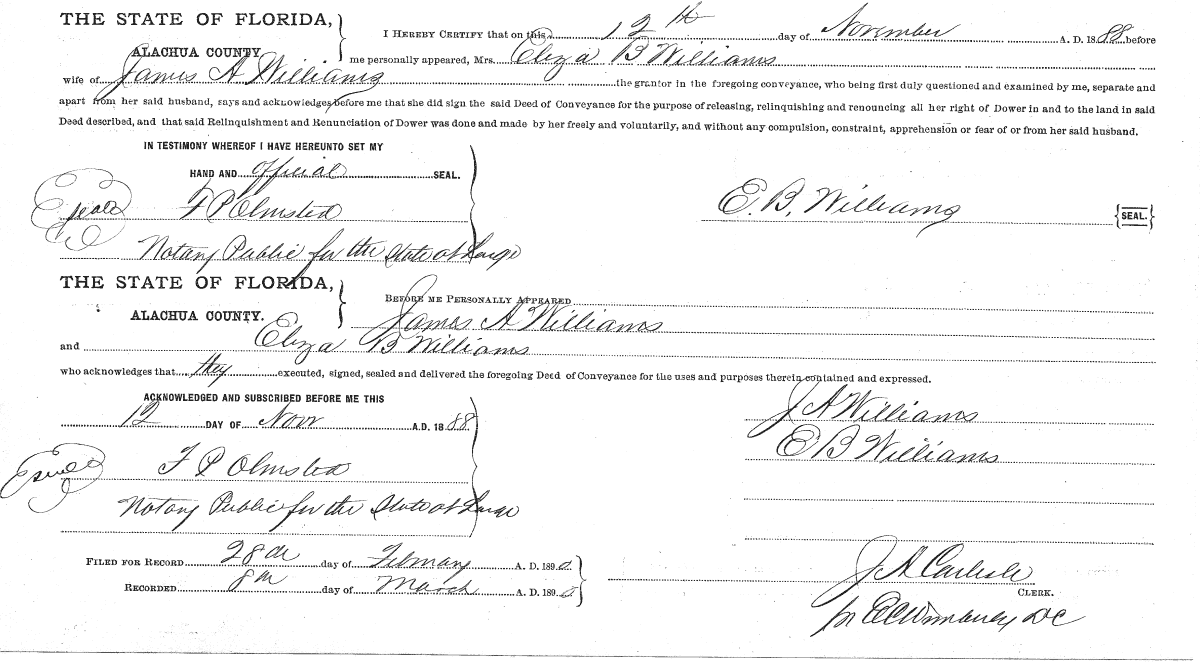 THE STATE OF FLORIDA,
ALACHUA COUNTY
I HEREBY CERTIFY that on this 12th day of November A. D. 1888 before
me personally appeared, Mrs. Eliza B Williams
wife of James A Williams the grantor in the foregoing conveyance, who being first duly questioned and examined by me, separate and
apart from her said husband, says and acknowledges before me that she did sign the said Deed of Conveyance for the purpose of releasing, relinquishing and renouncing all her right of Dower in and to the land in said
Deed described, and that said Relinquishment and Renunciation of Dower was done and made by her freely and voluntarily, and without any compulsion, constraint, apprehension or fear of or from her said husband.
IN TESTIMONY WHEREOF I HAVE HEREUNTO SET MY
HAND AND official SEAL.
seal F P Olmsted
E. B. Williams {SEAL.}
Notary Public for the State at Large
THE STATE OF FLORIDA,
ALACHUA COUNTY.
BEFORE ME PERSONALLY APPEARED
James A Williams
and Eliza B Williams
who acknowledges that they executed, signed, sealed and delivered the foregoing Deed of Conveyance for the uses and purposes therein contained and expressed.
ACKNOWLEDGED AND SUBSCRIBED BEFORE ME THIS
12 DAY OF Novr A.D. 1888
J A Williams
E B Williams
F P Olmsted
Notary Public for the State at Large
FILED FOR RECORD 28th day of February A. D. 1890
RECORDED 8th day of March A. D. 1890
J A Carlisle
CLERK.
DC